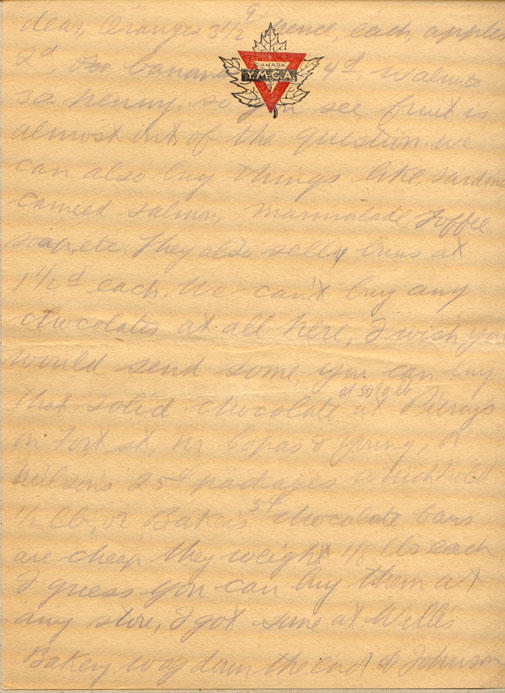 dear, Oranges 3 1/2 d pence, each, apples
2d bananas 4d Walnuts
CANADA
Y.M.C.A.
a penny, so you see fruit is
almost out of the question we
can also buy things like, sardines
canned salmon, marmalade toffee
soap, etc. They also sell buns at
1 1/2 d each. We can't buy any
chocolates at all here, I wish you
would send some, you can buy
that solid chocolate at 50¢ a lb at
on Fort st, nr Copas & Young, or
Neilson's 25¢ packages which hold
1/2 lb, or Baker's 5¢ chocolate bars
are cheap they weight 1/8 lbs each
I guess you can buy them at
any store, I got some at Willis
Bakery way down the end of Johnson